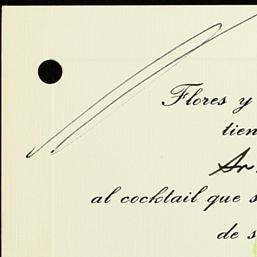 Flores y
tien
Sr.
al cocktail que s
de s